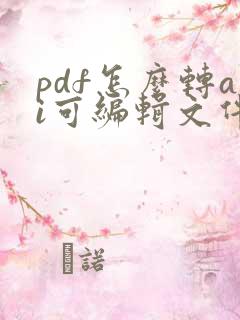 pdf怎麼轉a
i可編輯文件
諾